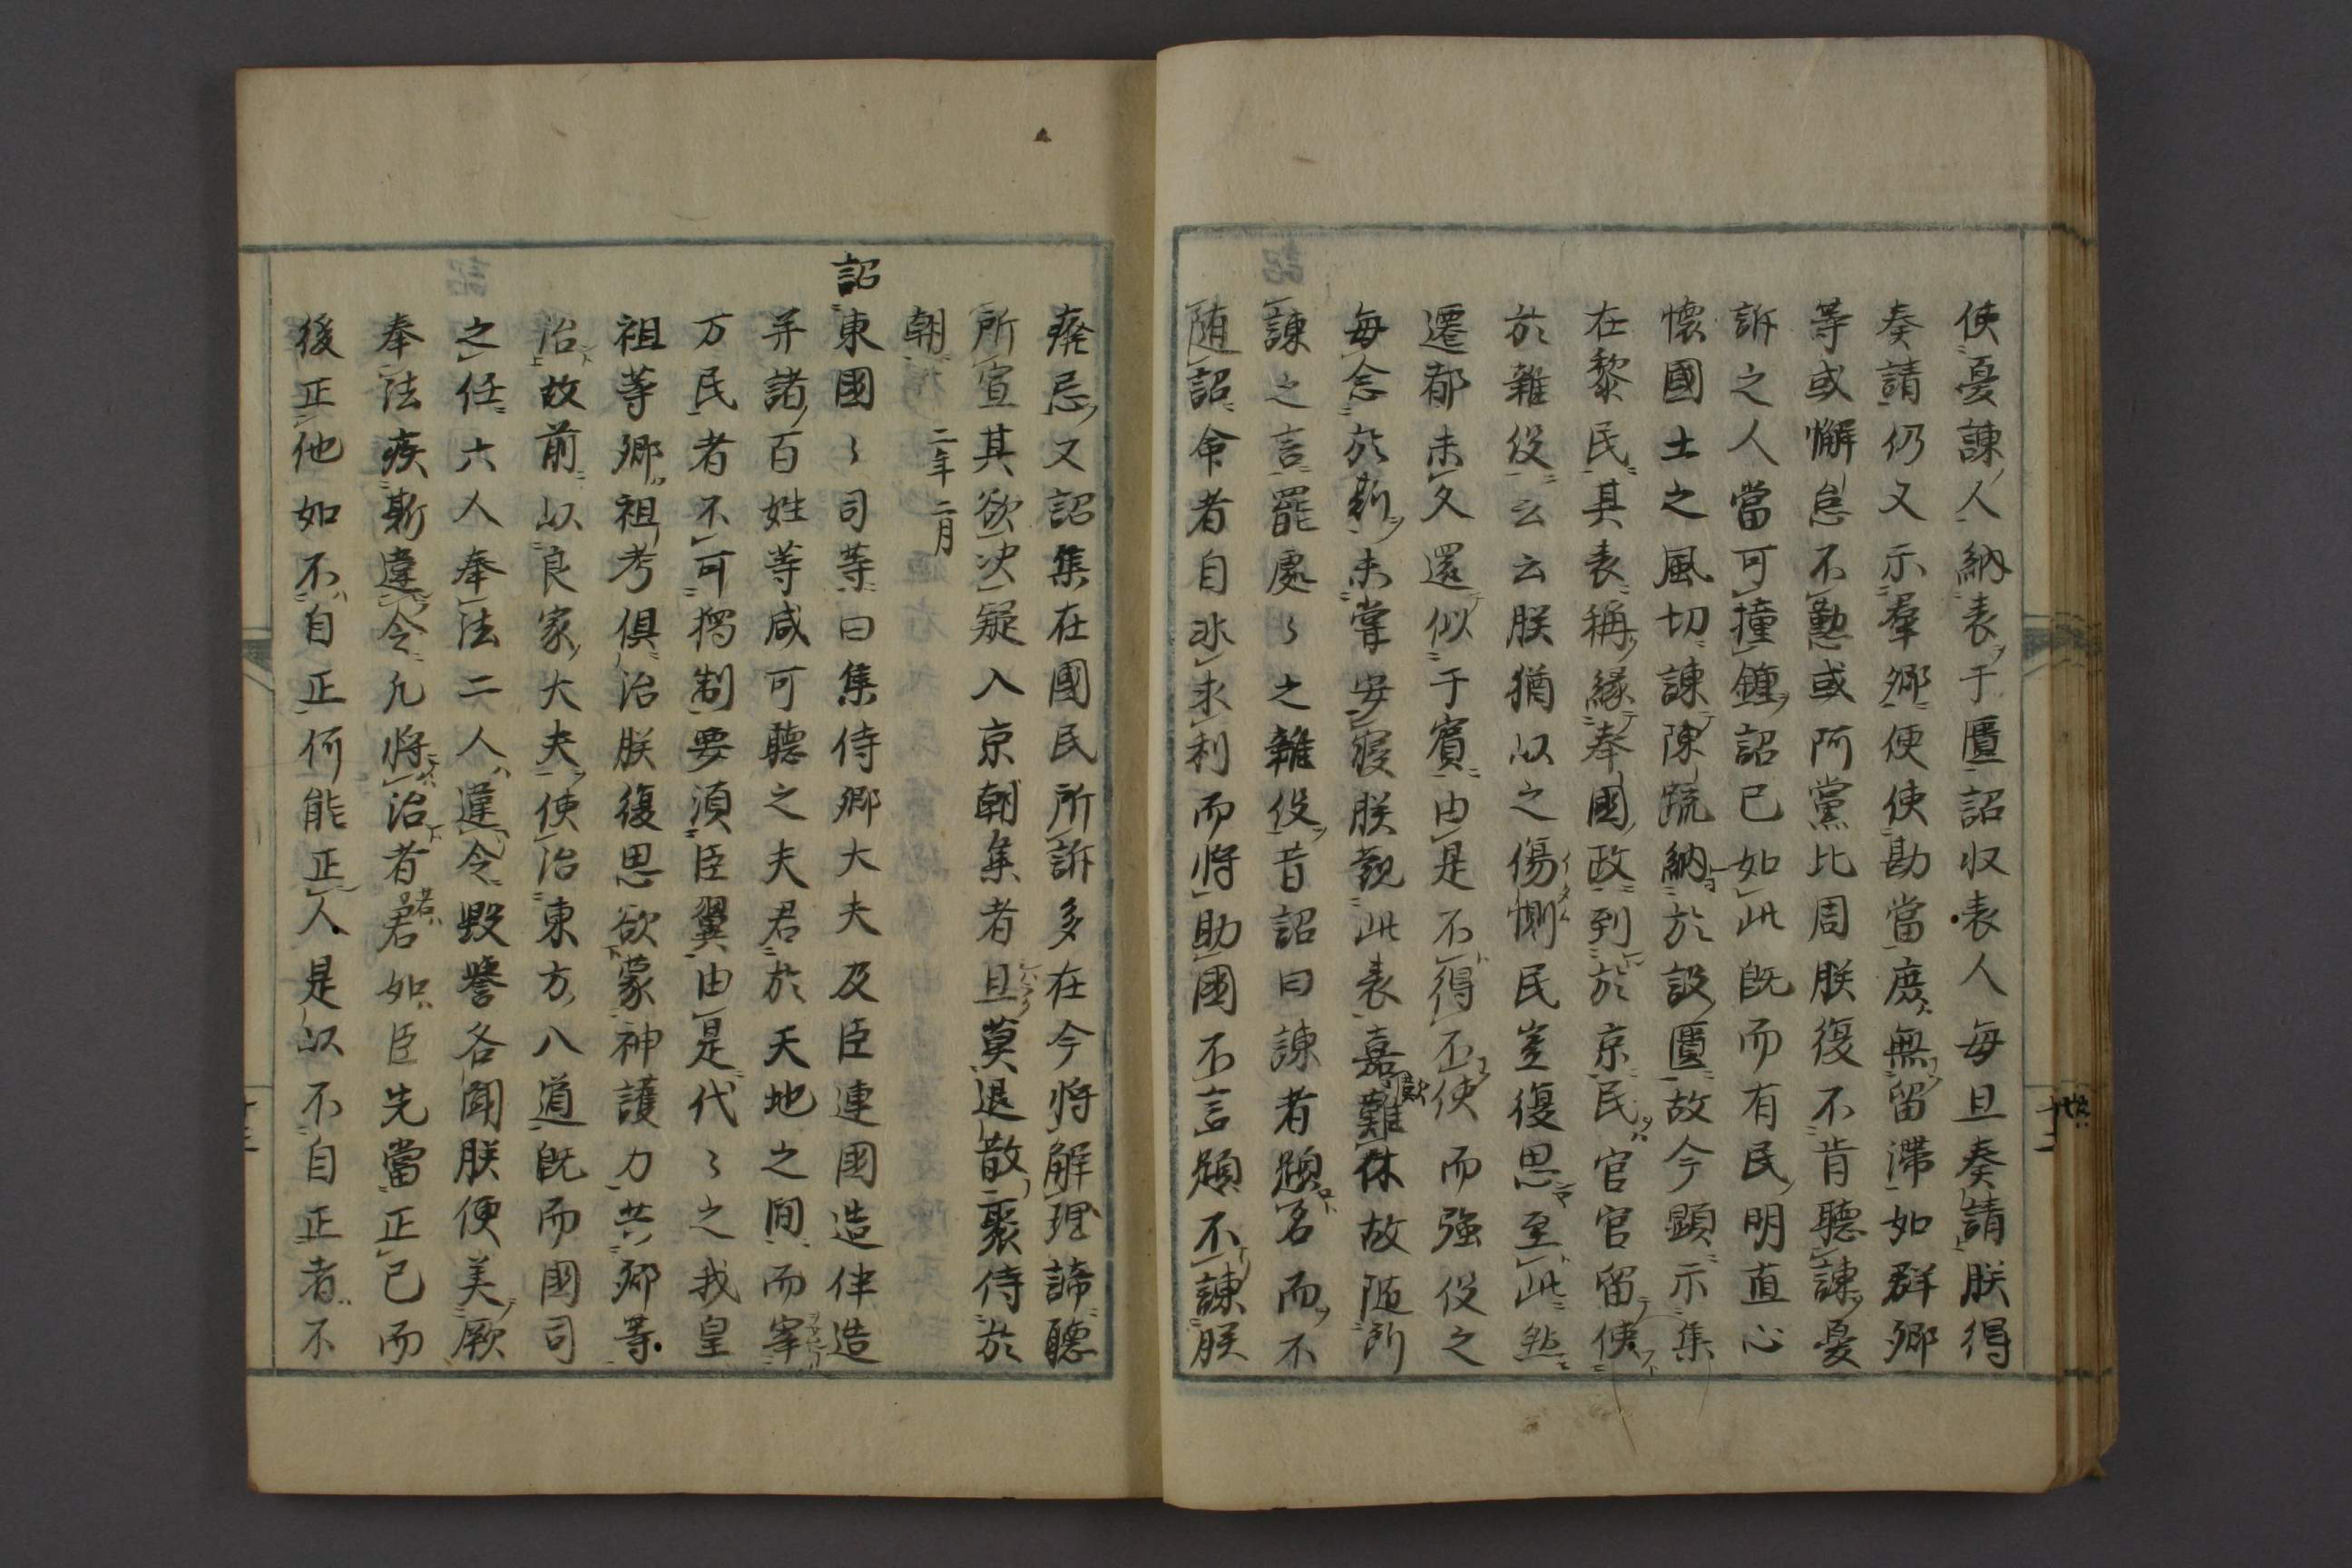 使憂諫人納表于匱詔収表人每旦奏請朕得
奏請仍又示羣卿便使勘當庶無留滯如群卿
等或懈怠不懃或阿黨比周朕復不肯聽諫憂
訴之人當可撞鍾詔已如此既而有民明直心
懷國土之風切諫陳䟽納於設匱故今顯示集
在黎民其表稱緣奉國政到於京民官官留使
於雜役云云朕猶以之傷惻民豈復思至此然
遷都未久還似于賓由是不得不使而強役之
每念於斯未嘗安寢朕觀此表嘉難休故随所
諫之言罷處〻之雜役昔詔曰諫者題名而不
随詔命者自非求利而將助國不言題不諫朕
癈忌又詔集在國民所訴多在今將解理諦聽
所宣其欲决疑入京朝集者且莫退散聚侍於
朝
二年二月
詔
東國〻司等曰集侍卿大夫及臣連國造伴造
并諸百姓等咸可聽之夫君於天地之間而宰
万民者不可獨制要須臣翼由是代〻之我皇
祖等卿祖考俱治朕復思欲蒙神護力共卿等
治故前以良家大夫使治東方八道既而國司
之任六人奉法二人違令毀譽各聞朕便美厥
奉法疾斯違令凢將治者君如臣先當正己而
後正他如不自正何能正人是以不自正者不